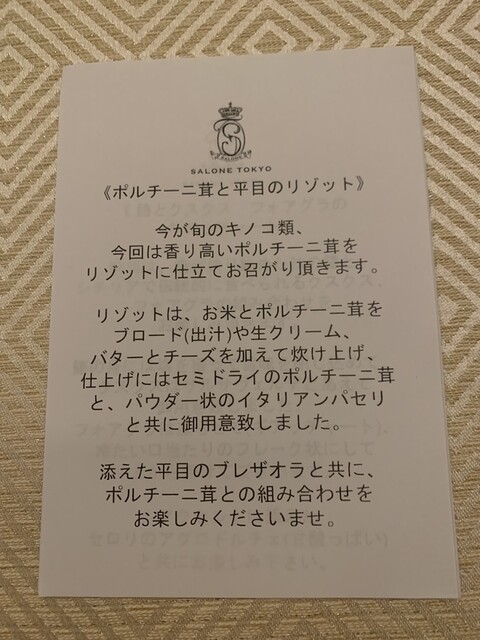 SALONE
SALONE TOKYO
《ポルチーニ茸と平目のリゾット》
今が旬のキノコ類、
今回は香り高いポルチーニ茸を
リゾットに仕立てお召がり頂きます。
リゾットは、お米とポルチーニ茸を
ブロード(出汁)や生クリーム、
バターとチーズを加えて炊け上げ、
仕上げにはセミドライのポルチーニ茸
と、パウダー状のイタリアンパセリ
と共に御用意致しました。
添えた平目のブレザオラと共に、
ポルチーニ茸との組み合わせを
お楽しみくださいませ。